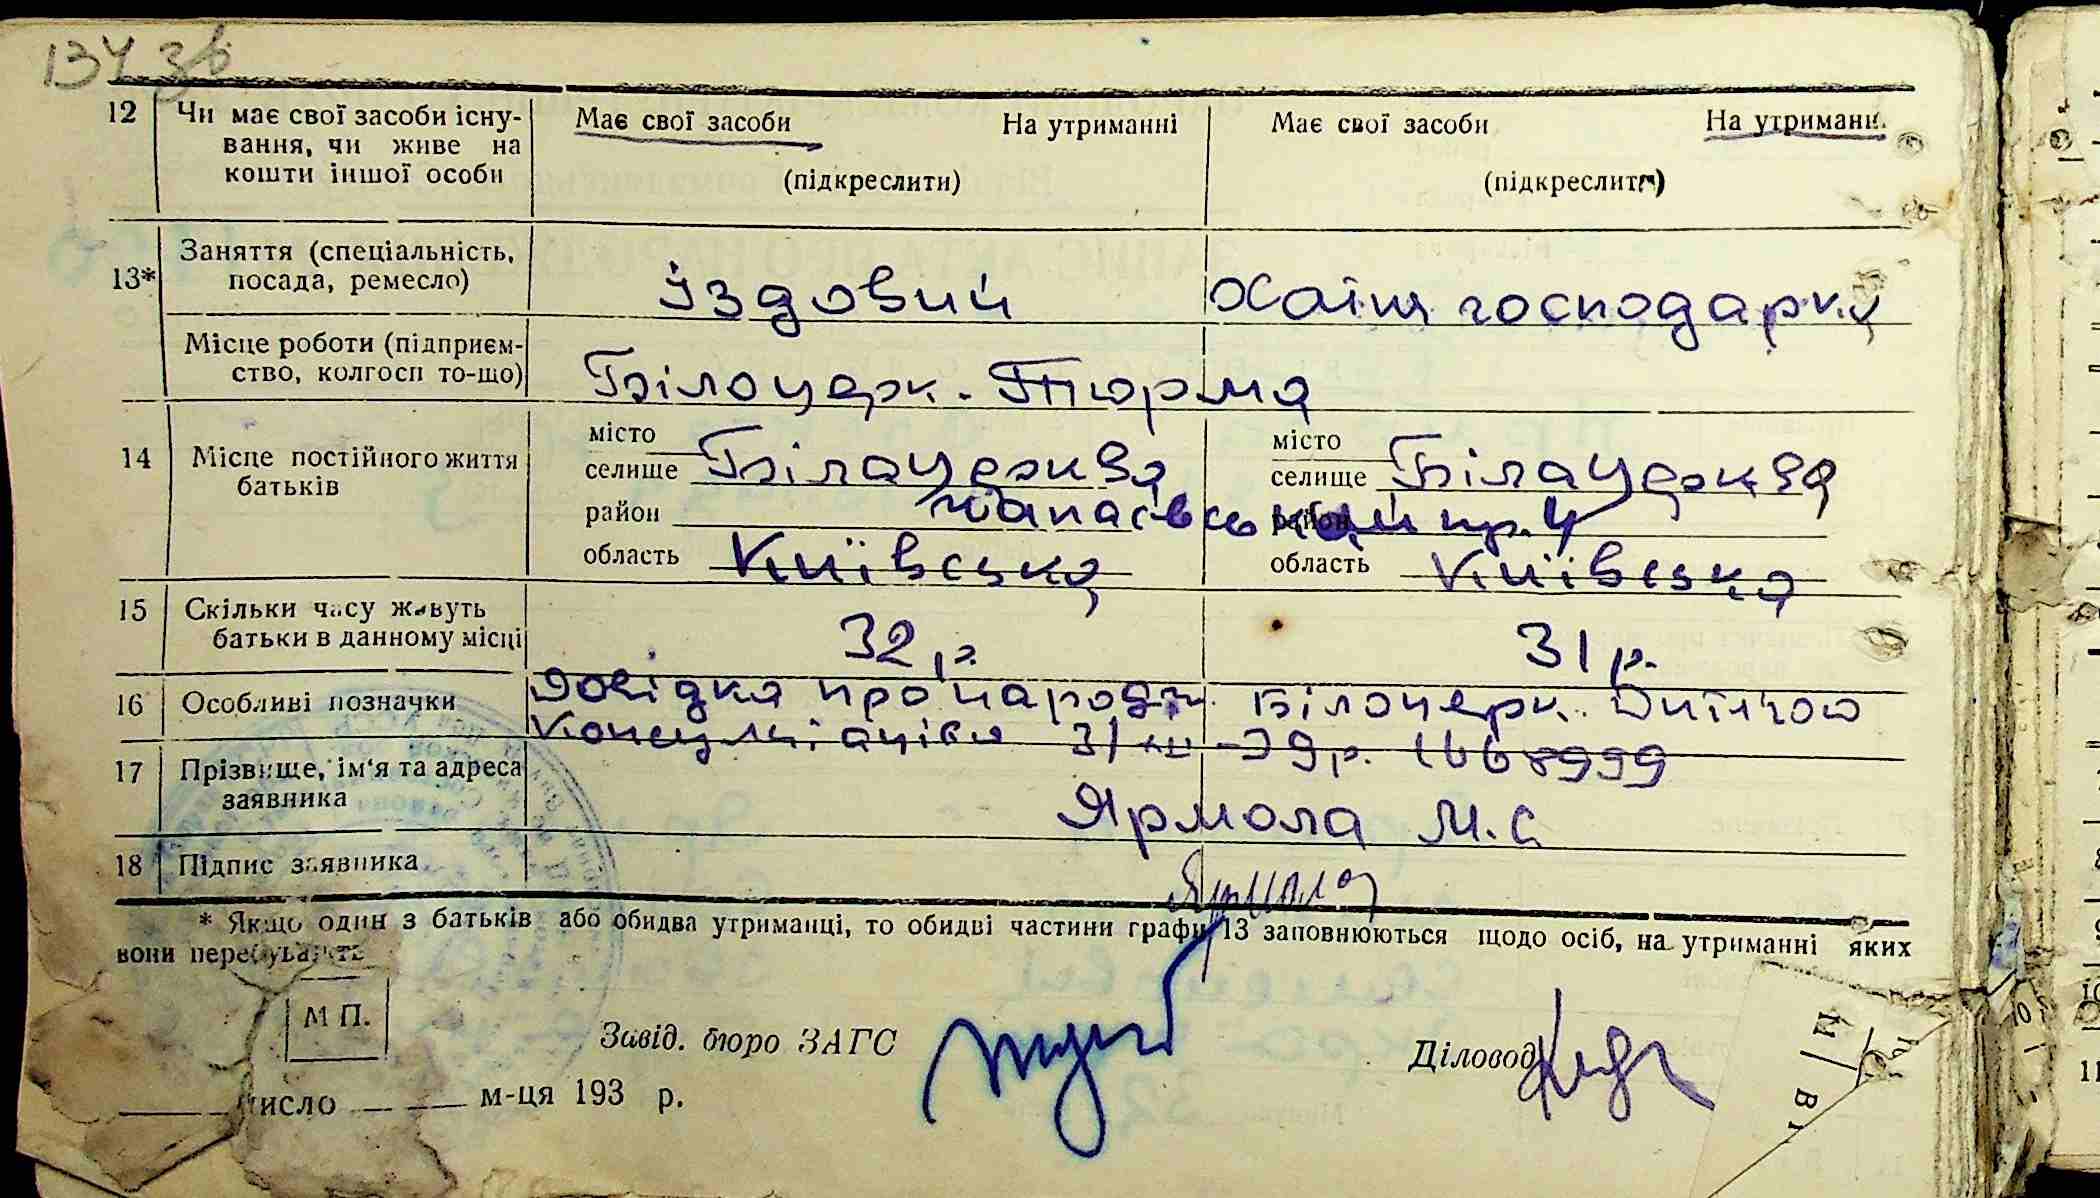 134 зв
12 Чи має свої засоби існу- Має свої засоби На утриманні Має свої засоби На утриманн.
вання, чи живе на
кошти іншої особи (підкреслити) (підкреслити)
Заняття (спеціальність,
13* посада, ремесло) Їздовий Хатня господарка
Місце роботи (підприєм-
ство, колгосп то-що) Білоцерк. Тюрма
14 Місце постійного життя місто місто
батьків селище Білацерква селище Білацерква
район район пр. 4
область Київська область Київська
15 Скільки часу живуть
батьки в данному місці 32 р. 31 р.
16 Особливі позначки Довідка про народж. Білоцерк. Дитячою
Консультацією 31/XII-39р.
17 Прізвище, ім'я та адреса
заявника Ярмола М. С
18 Підпис заявника Ярмола
* Якщо один з батьків або обидва утриманці, то обидві частини графи 13 заповнюються щодо осіб, на утриманні яких
вони перебувають
М П.
Завід. бюро ЗАГС Діловод
число м-ця 193 р.